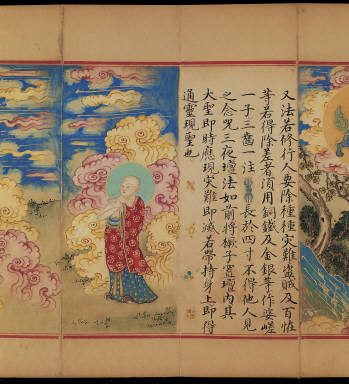 又法若修行人要除種種灾難盗賊及百恠
等若得除差者須用銅鐵及金銀等作
一子三
注
長於四寸不得他人見
之念咒三夜壇法如前將橛子置壇內其
大聖即時應現灾難即滅若帶持身上即得
通靈現聖也